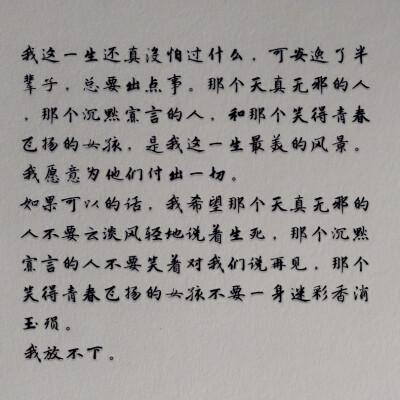 我这一生还真没怕过什么，可安逸了半
辈子，总要出点事。那个天真无邪的人
，那个沉默寡言的人，和那个笑得青春
飞扬的女孩，是我这一生最美的风景。
我愿意为他们付出一切。
如果可以的话，我希望那个天真无邪的
人不要云淡风轻地说着生死，那个沉默
寡言的人不要笑着对我们说再见，那个
笑得青春飞扬的女孩不要一身迷彩香消
玉殒。
我放不下。